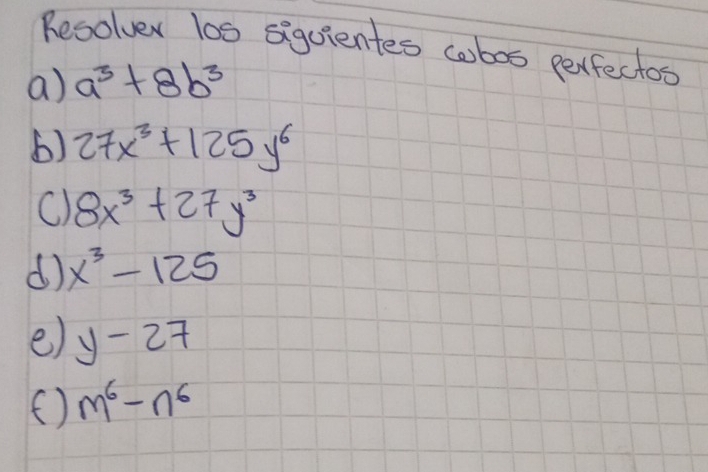 Resolver los siguientes cubos perfectos
a) a³ + 8b³
b) 27x³ + 125y⁶
c) 8x³ + 27y³
d) x³ - 125
e) y - 27
f) m⁶ - n⁶